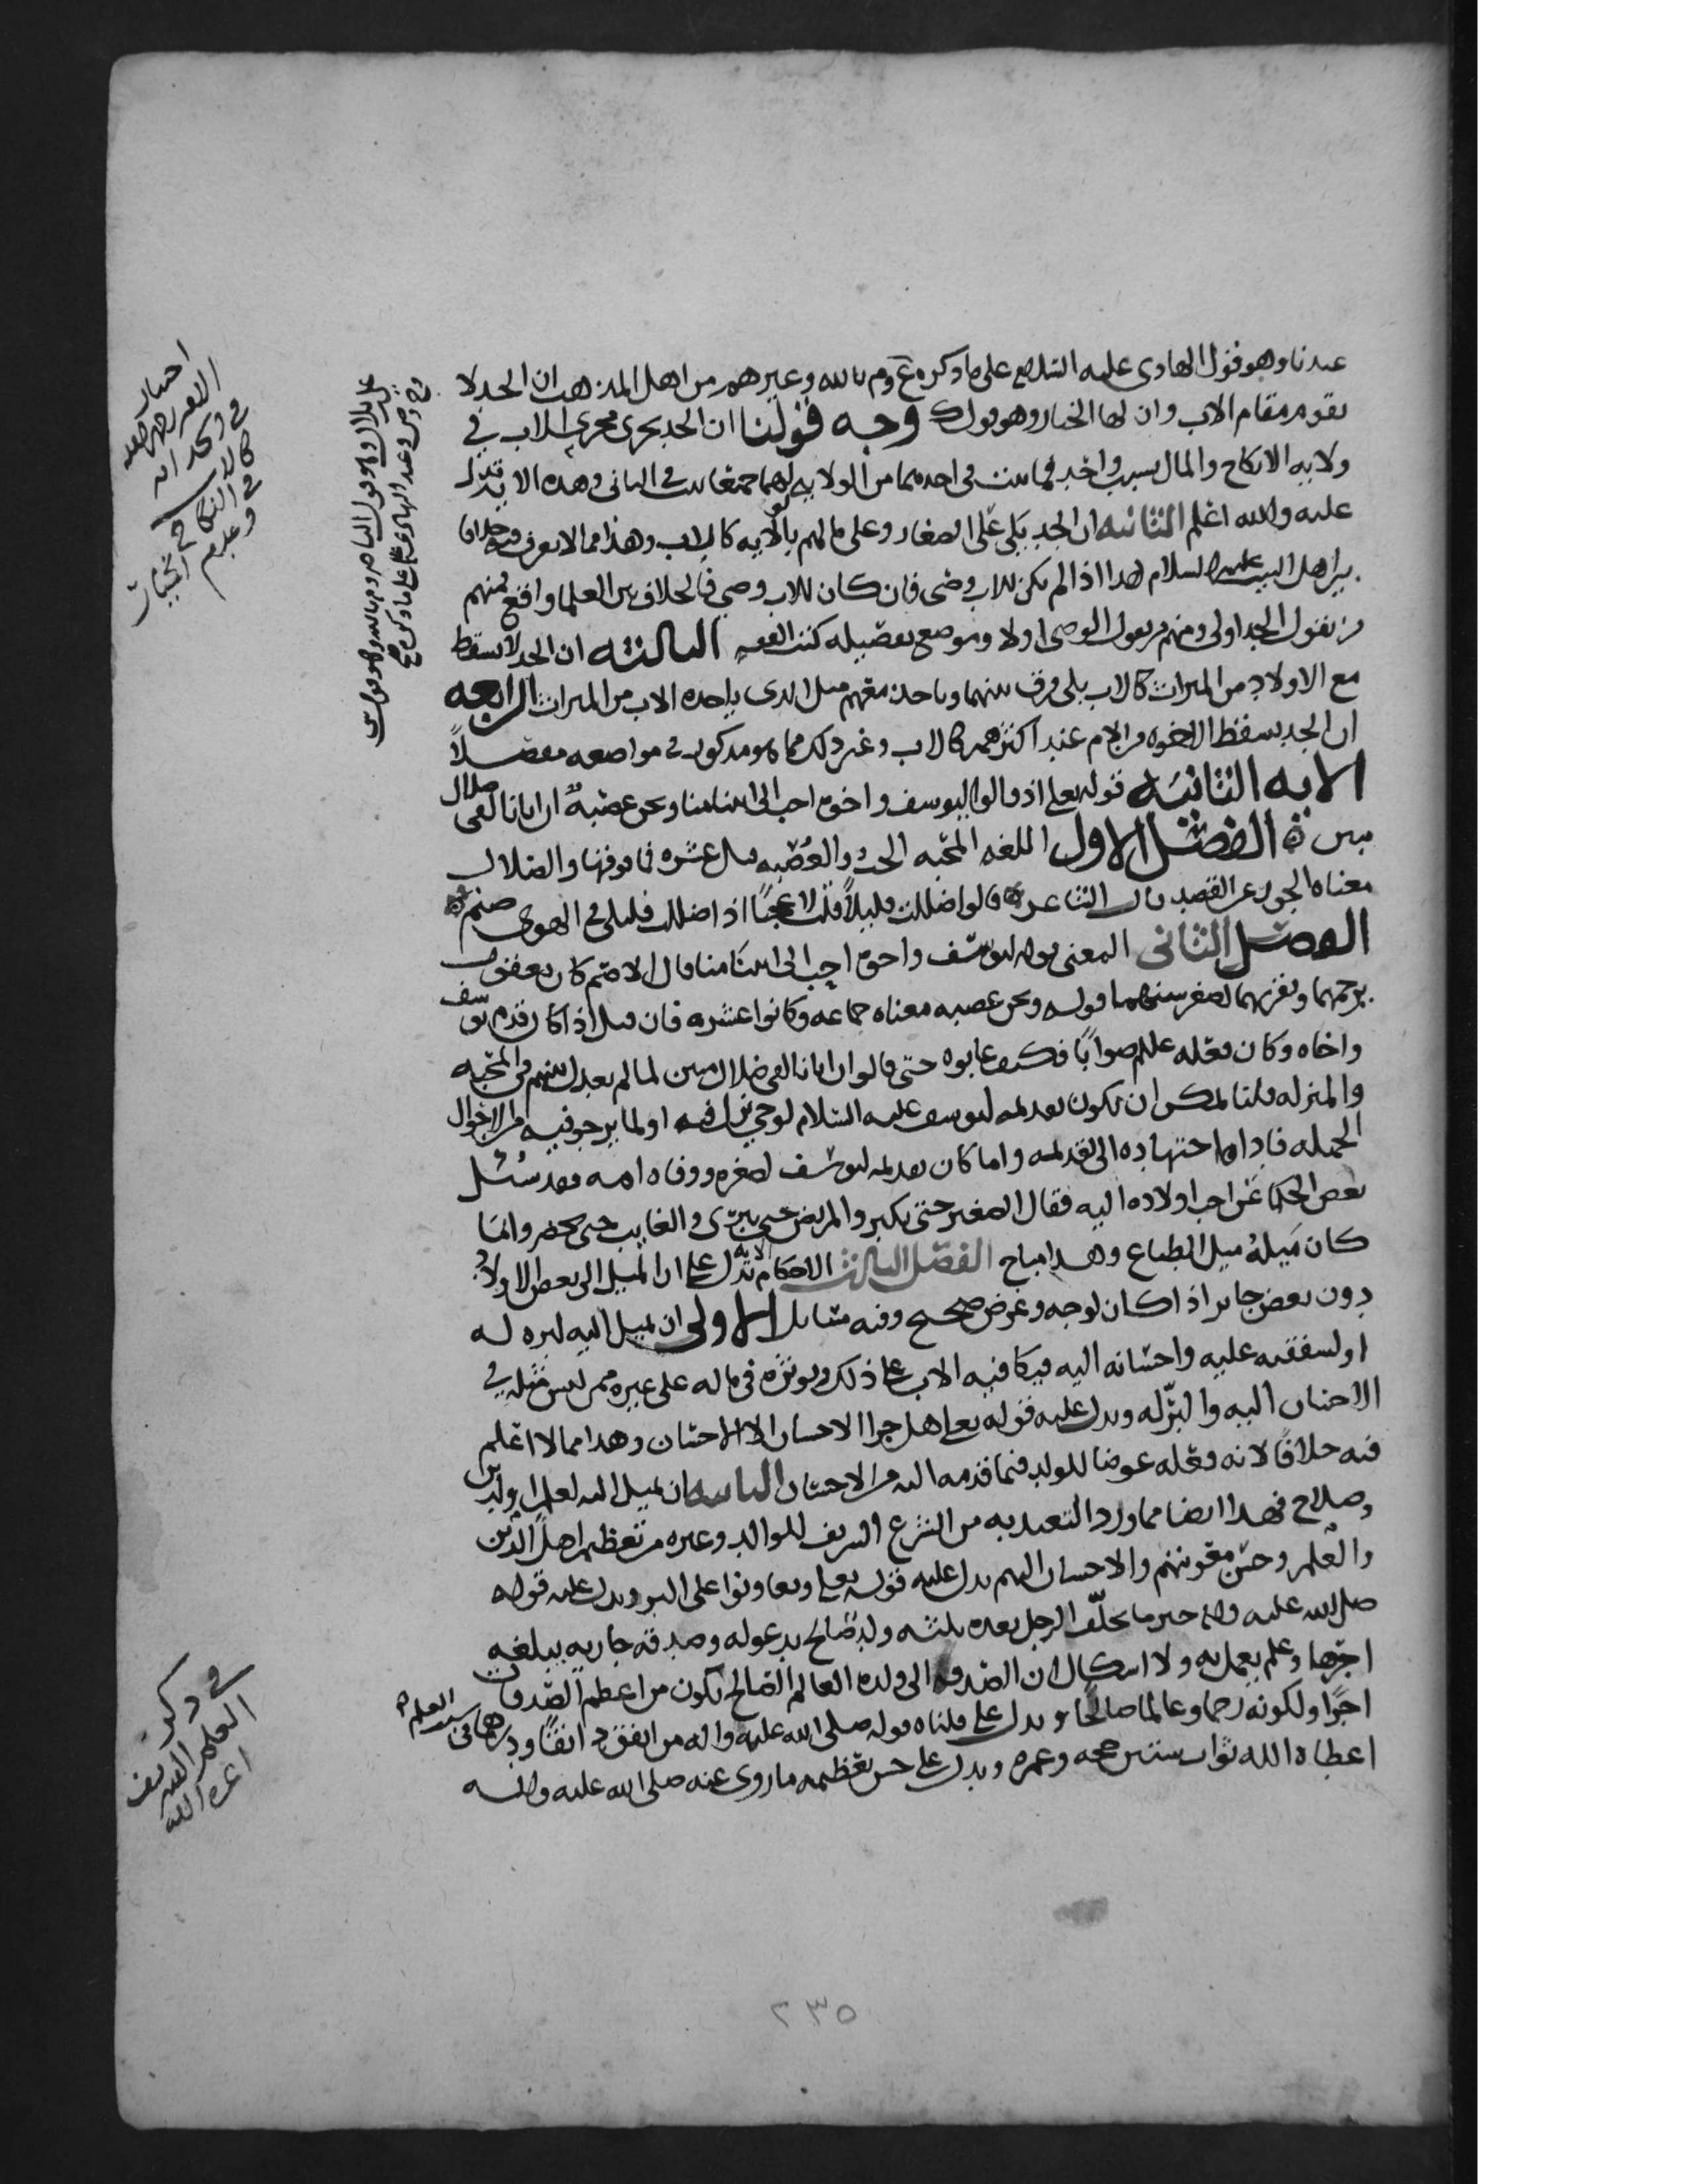 عندنا وهو قول الهادي عليه السلام على ما ذكره ع وم بالله وغيرهم من اهل المذهب ان الجد لا
يقوم مقام الاب وان لها الخيار وهو قول ك وجه قولنا ان الجد يجري مجرى الاب في
ولايه الانكاح والمال بسبب واحد فما ثبت في احدهما من الولايه لهما جميعا ثبت في الثاني وهذه الايه تدل
عليه والله اعلم الثانيه ان الجد يلي على الصغار وعلى مالهم بالولايه كالاب وهذا مما لا يعرف فيه خلافا
بين اهل البيت عليهم السلام هذا اذا لم يكن للاب وصي فان كان للاب وصي فالخلاف بين العلما واقع فمنهم
من يقول الجد اولى ومنهم من يقول الوصي اولا وموضع تفصيله كتب الفقه الثالثه ان الجد لا يسقط
مع الاولاد من الميراث كالاب بلى فرق بينهما وياخذ معهم مثل الذي ياخذه الاب من الميراث الرابعه
ان الجد يسقط الاخوه من الام عند اكثرهم كالاب وغير ذلك مما هو مذكور في مواضعه مفصلاً
الايه الثانيه قوله تعلى اذ قالوا ليوسف واخوه احب الى ابينا منا ونحن عصبةٌ ان ابانا لفي ضلال
مبين ه الفصل الاول اللغه المحبه الحب والعُصبه قيل عشره فما فوقها والضلال
معناه الجور عن القصد قال الشاعر ه قالوا ضللت قليلاً قلت لا عجباً اذ اضللت قليلي في الهوى صنم ه
الفصل الثاني المعنى قوله ليوسف واخوه احب الى ابينا منا قال الاصم كان يعقوب
يرحمهما ويقربهما لصغر سنهما قوله ونحن عصبه معناه جماعه وكانوا عشره فان قيل اذا كان قدم يوسف
واخاه وكان فعله عليلم صواباً فكيف عابوه حتى قالوا ان ابانا لفي ضلال مبين لما لم يعدل بينهم في المحبه
والمنزله قلنا يمكن ان يكون تقديمه ليوسف عليه السلام لوحي نزل فيه او لما يرجو فيه من الاحوال
الجميله فاداه اجتهاده الى تقديمه واما كان تقديمه ليوسف لصغره ووفاه امه فقد سُئل
بعض الحكما عن احب اولاده اليه فقال الصغير حتى يكبر والمريض حتى يبرى والغايب حتى يحضر وانما
كان مَيلهُ ميل الطباع وهذا مباح الفصل الثالث الاحكام الايه تدل على ان الميل الى بعض الاولاد
دون بعض جايز اذا كان لوجه وغرض صحيح وفيه مسايل الاولى ان يميل اليه لبره له
او لشفقته عليه واحسانه اليه فيكافيه الاب على ذلك ويوثره في ماله على غيره ممن ليس مثله في
الاحسان اليه والبرّ له ويدل عليه قوله تعلى هل جزا الاحسان الا الاحسان وهذا مما لا اعلم
فيه خلافاً لانه فعله عوضا للولد فيما قدمه اليه من الاحسان الثانيه ان يميل اليه لعلم او لدين
وصلاح فهذا ايضا مما ورد التعبد به من الشرع الشريف للوالد وغيره من تعظيم اهل الدين
والعلم وحسن معونتهم والاحسان اليهم يدل عليه قوله تعلى وتعاونوا على البر ويدل عليه قوله
صلى الله عليه واله خير ما يخلّف الرجل بعده ثلثه ولد صالح يدعو له وصدقه جاريه يبلغه
اجرها وعلم يعمل به ولا اشكال ان الصدقه الى ولده العالم الصالح يكون من اعظم الصدقات
اجراً ولكونه رحما وعالما صالحا ويدل على قلناه قوله صلى الله عليه واله من انفق
اعطاه الله ثواب ستين حجه وعمره ويدل على حسن تعظيمه ما روي عنه صلى الله عليه واله
في ذكر
العلم الشريف
اعزه الله
٢٣٥